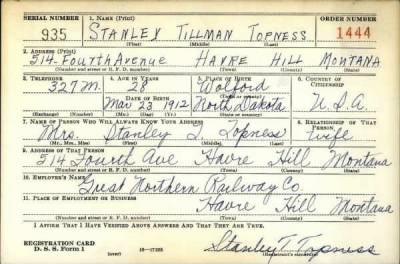 SERIAL NUMBER 1. NAME (Print) ORDER NUMBER
935 STANLEY TILLMAN TOPNESS 1444
(First) (Middle) (Last)
2. ADDRESS (Print)
514-Fourth Avenue HAVRE HILL MONTANA
(Number and street or R. F. D. number) (Town) (County) (State)
3. TELEPHONE 4. AGE IN YEARS 5. PLACE OF BIRTH 6. COUNTRY OF CITIZENSHIP
327M. 28 Wolford
DATE OF BIRTH (Town or county)
Mar 23 1912 North Dakota U.S.A.
(Exchange) (Number) (Mo.) (Day) (Yr.) (State or country)
7. NAME OF PERSON WHO WILL ALWAYS KNOW YOUR ADDRESS 8. RELATIONSHIP OF THAT PERSON
Mrs. Stanley T. Topness wife
(Mr., Mrs., Miss) (First) (Middle) (Last)
9. ADDRESS OF THAT PERSON
514 Fourth Ave Havre Hill Montana
(Number and street or R. F. D. number) (Town) (County) (State)
10. EMPLOYER'S NAME
Great Northern Railway Co.
11. PLACE OF EMPLOYMENT OR BUSINESS
Havre Hill Montana
(Number and street or R. F. D. number) (Town) (County) (State)
I AFFIRM THAT I HAVE VERIFIED ABOVE ANSWERS AND THAT THEY ARE TRUE.
REGISTRATION CARD
D. S. S. Form 1 (over) Stanley T. Topness
(Registrant's signature)